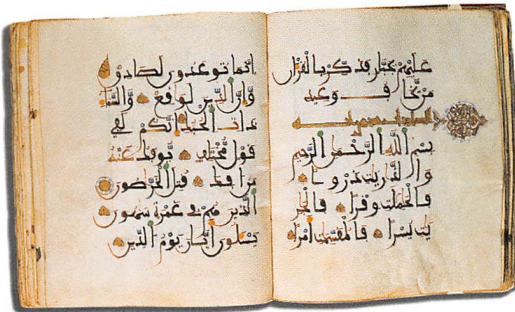 عليهم بجبار فذكر بالقران
من يخاف وعيد
بسم الله الرحمن الرحيم
والذريت ذروا
فالحملت وقرا فالجر
يت يسرا فالمقسمت امرا
انما توعدون لصادق
وان الدين لوقع والسما
ذات الحبك انكم لفي
قول مختلف يوفك عنه
من افك قتل الخرصون
الذين هم في غمرة ساهون
يسلون ايان يوم الدين